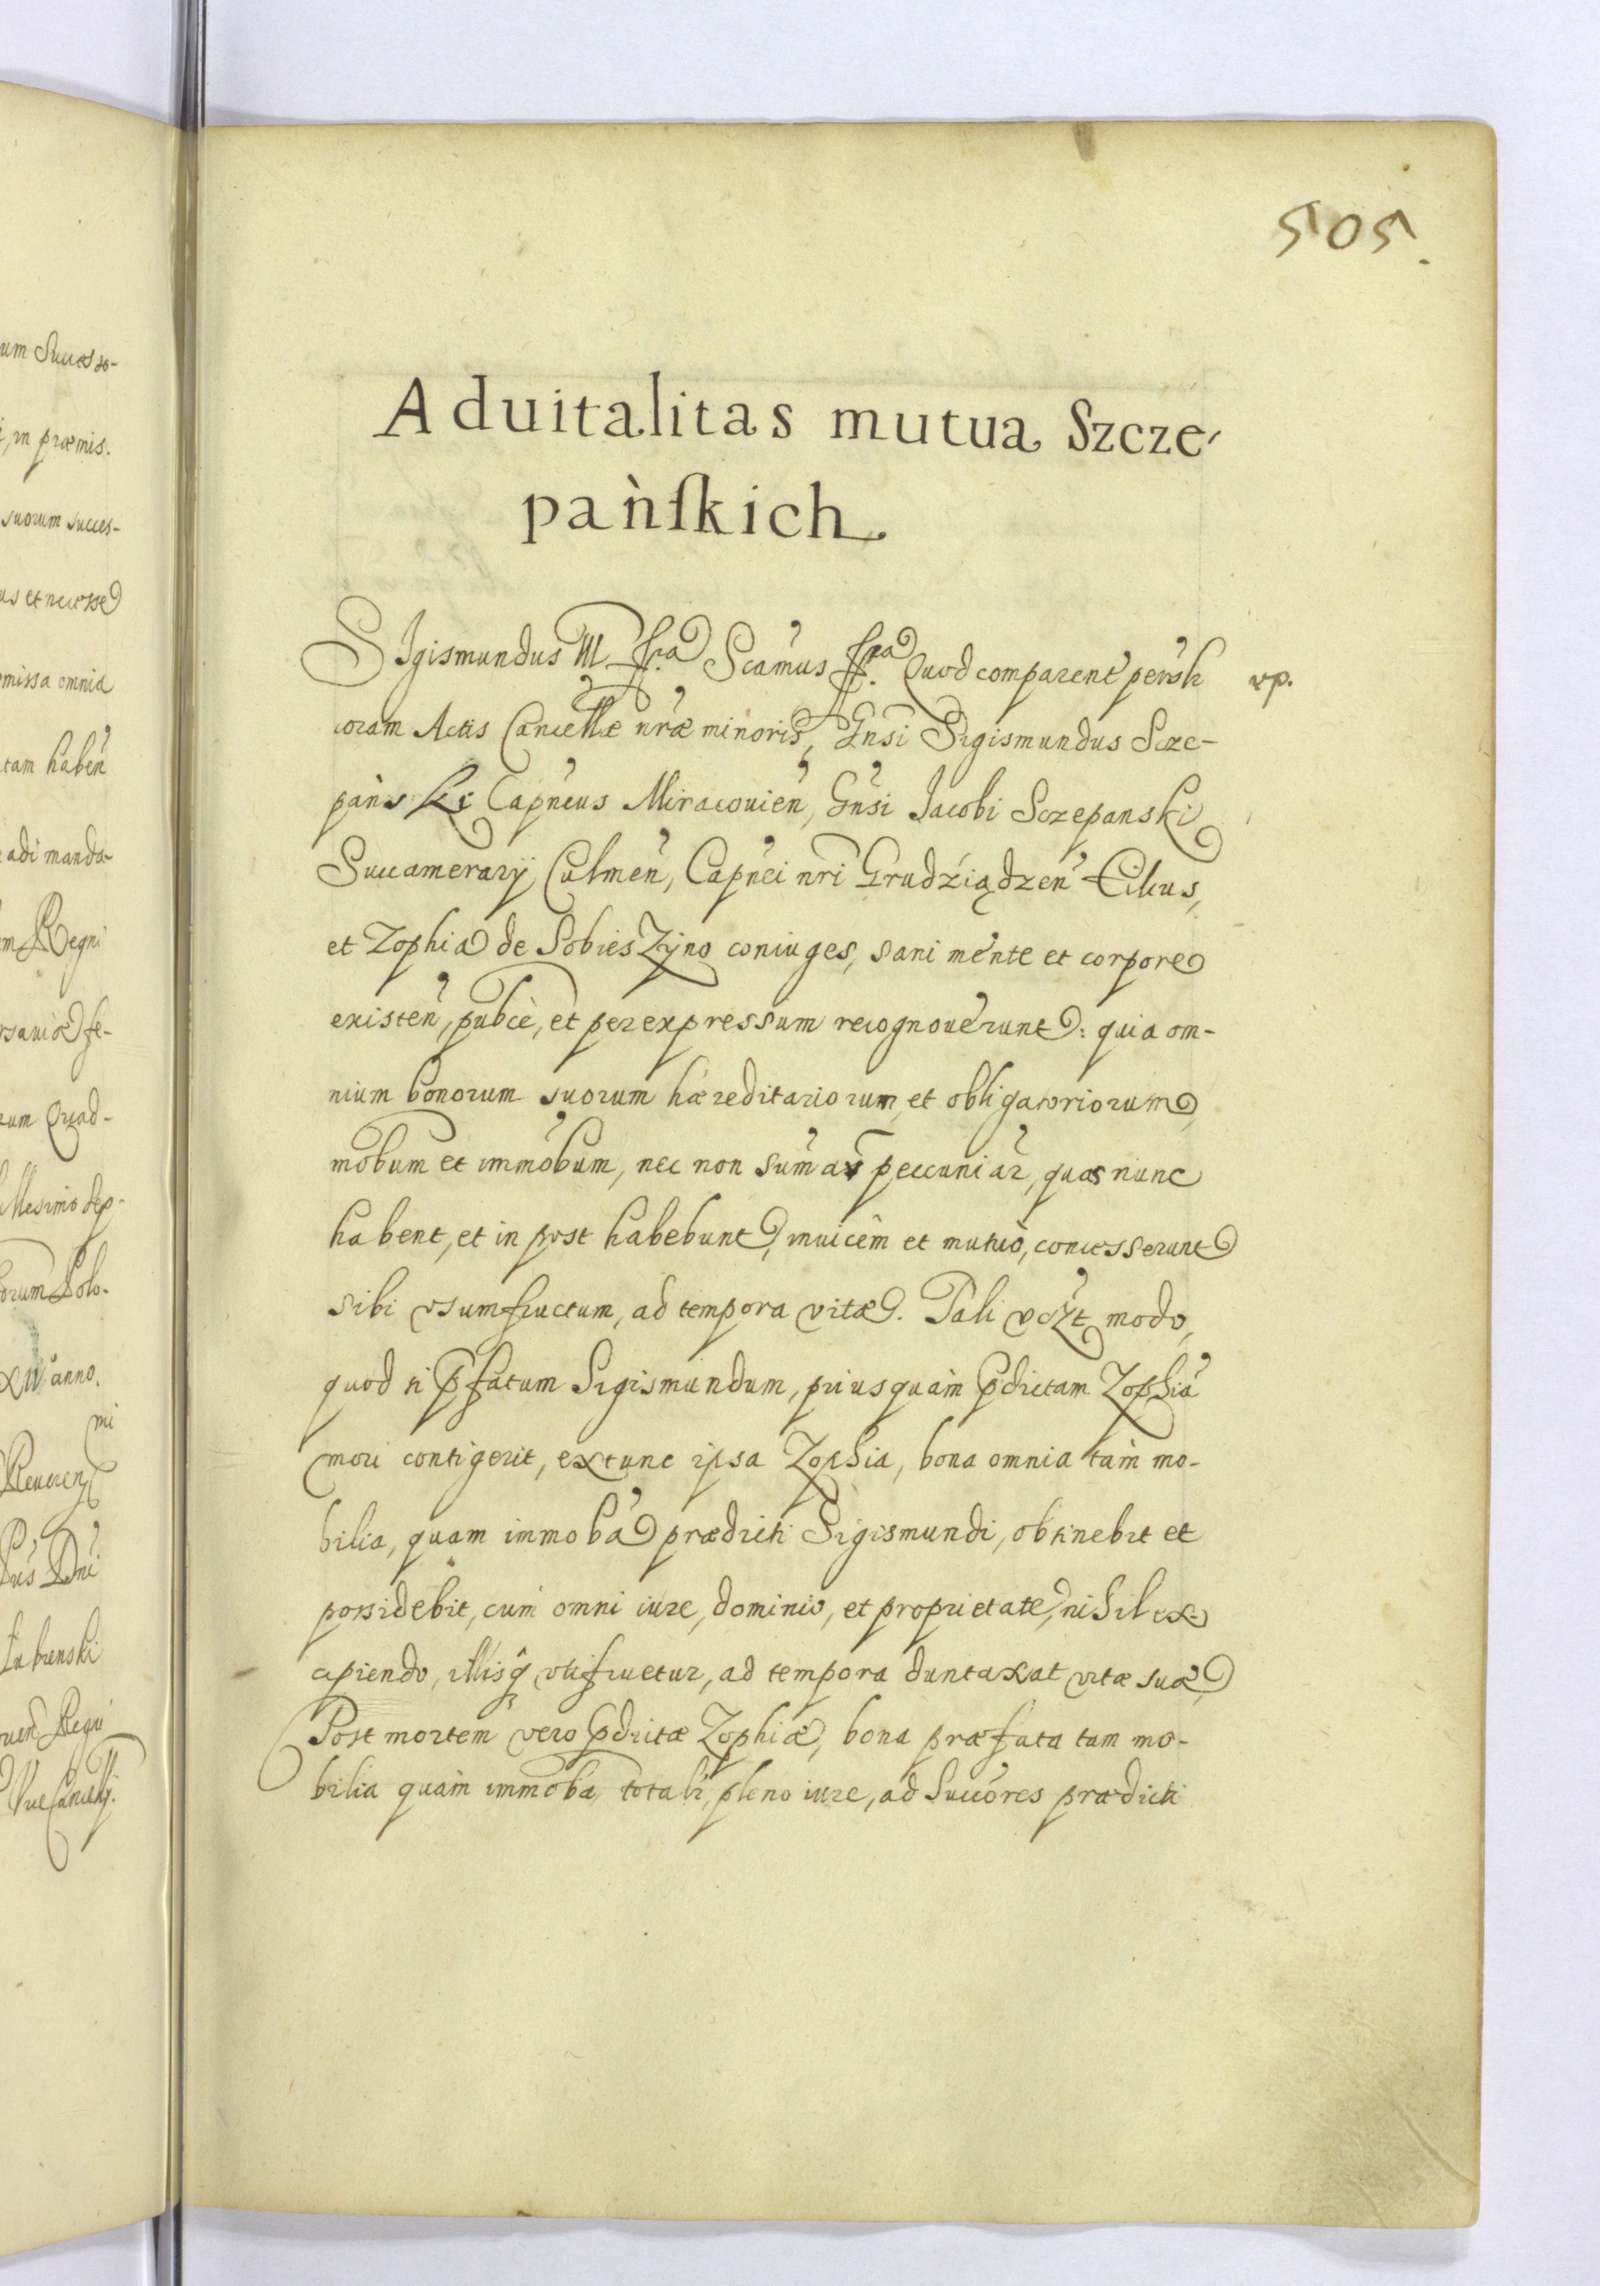 505.
Aduitalitas mutua Szcze-
pańskich
Sigismundus III Scamus Quod comparent persh vp.
coram Actis Cancellæ nræ minoris, Gnsi Sigismundus Szcze-
pański Capneus Miracouien, Gnsi Jacobi Sczepanski
Succamerarÿ Culmen, Capnei nri Grudziądzen Filius,
et Zophia de SobiesZÿno coniuges, sani mente et corpore
existen, pubce, et per expressum recognouerunt: quia om-
nium bonorum suorum hæreditariorum, et obligatoriorum,
mobum et immobum, nec non sumar peccuniar, quas nunc
habent, et in post habebunt, inuicem et mutuò, concesserunt
sibi vsumfructum, ad tempora vitæ. Tali modo,
quod si pfatum Sigismundum, priusquam pdictam Zophia
mori contigerit, extunc ipsa Zophia, bona omnia tam mo-
bilia, quam immoba prædicti Sigismundi, obtinebit et
possidebit, cum omni iure, dominio, et proprietate, nihil ex-
cipiendo, illisq vtifruetur, ad tempora duntaxat vitæ suæ,
Post mortem vero pdictæ Zophiæ, bona præfata tam mo-
bilia quam immoba, totali, pleno iure, ad Succores prædicti
um Successo-
, in præmis.
suorum succes-
us et necesse
missa omnia
tam haben
adi manda-
m Regni
um Quad-
llesimo sep-
orum Polo-
anno.
mi
Dni
Lubienski
Regni